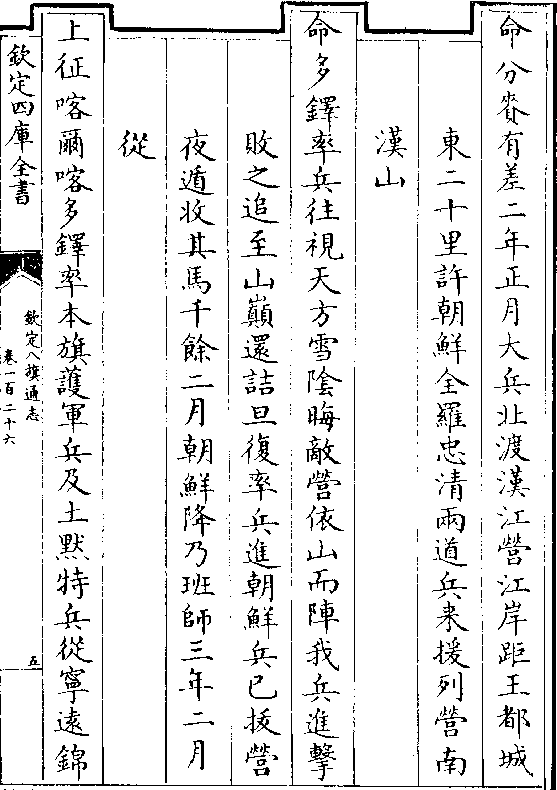 命分賚有差二年正月大兵北渡漢江營江岸距王都城
東二十里許朝鮮全羅忠清兩道兵来援列營南
漢山
命多鐸率兵往視天方雪陰晦敵營依山而陣我兵進擊
敗之追至山巔還詰旦復率兵進朝鮮兵已拔營
夜遁收其馬千餘二月朝鮮降乃班師三年二月
從
上征喀爾喀多鐸率本旗護軍兵及土默特兵從寧遠錦
欽定四庫全書
欽定八旗通志
卷一百二十六
五